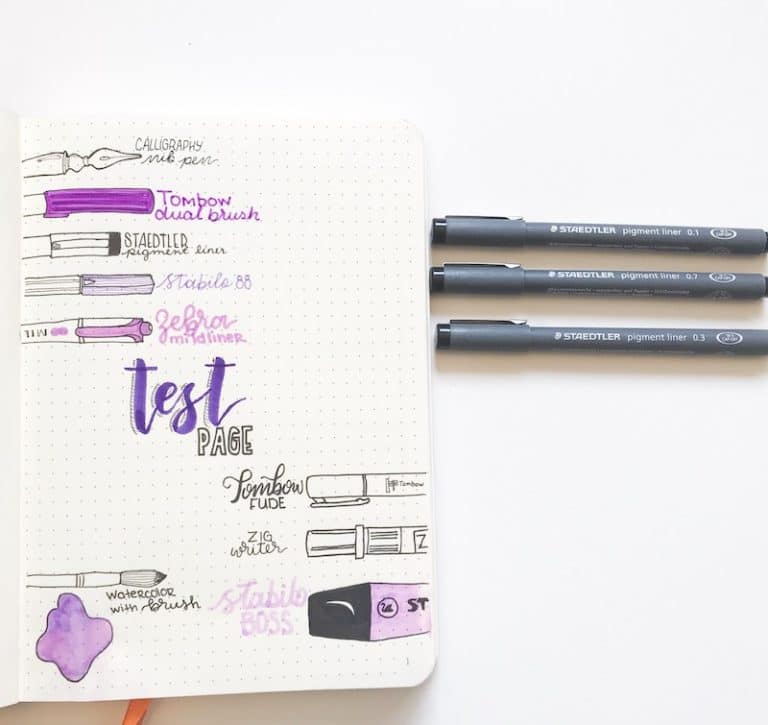 CALLIGRAPHY
nib pen
Tombow
dual brush
STAEDTLER
pigment liner
Stabilo 88
MILD
Zebra
mildliner
test
PAGE
Tombow
FUDE
Tombow
ZIG
writer
Z
WATERCOLOR
with brush
stabilo
BOSS
ST
1
STAEDTLER pigment liner 0.1
STAEDTLER pigment liner 0.7
STAEDTLER pigment liner 0.3